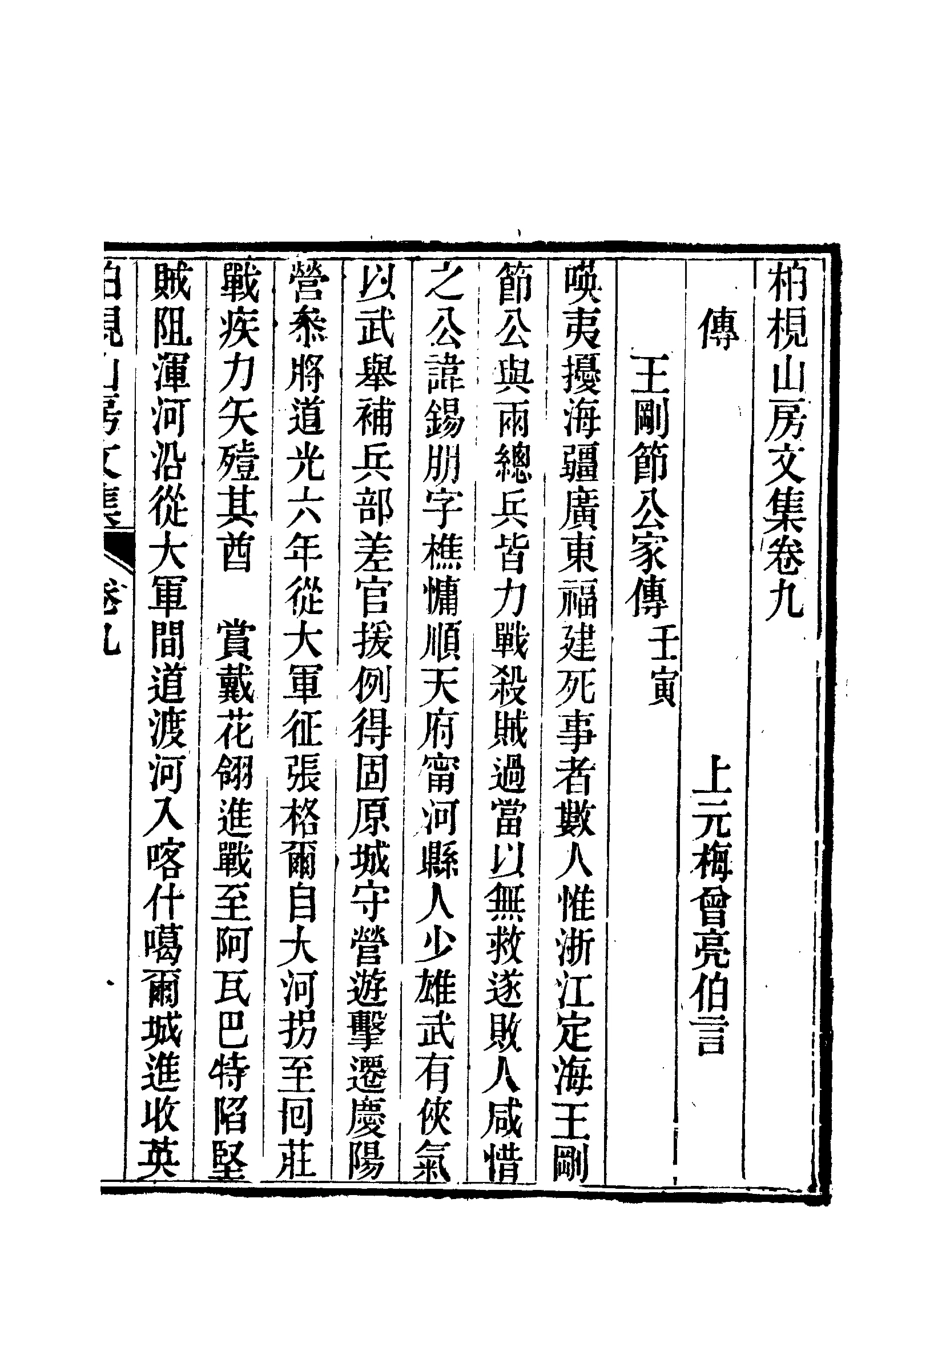 柏梘山房文集卷九
傳
上元梅曾亮伯言
王剛節公家傳 壬寅
㗸夷擾海疆廣東福建死事者數人惟浙江定海王剛
節公與兩總兵皆力戰殺賊過當以無救遂敗人咸惜
之公諱錫朋字樵慵順天府甯河縣人少雄武有俠氣
以武舉補兵部差官援例得固原城守營遊擊遷慶陽
營叅將道光六年從大軍征張格爾自大河拐至囘莊
戰疾力矢殪其酋 賞戴花翎進戰至阿瓦巴特陷堅
賊阻渾河沿從大軍間道渡河入喀什噶爾城進收英
柏梘山房文集 卷九